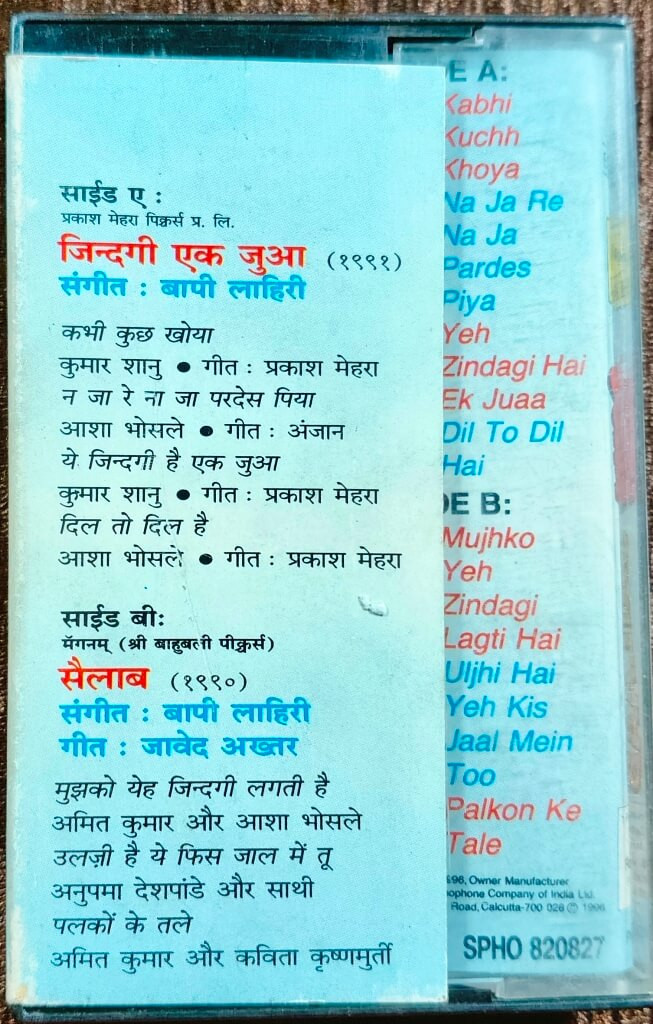 साईड ए :
प्रकाश मेहरा पिक्चर्स प्र. लि.
जिन्दगी एक जुआ (१९९१)
संगीत : बापी लाहिरी
कभी कुछ खोया
कुमार शानु ● गीत : प्रकाश मेहरा
न जा रे ना जा परदेस पिया
आशा भोसले ● गीत : अंजान
ये जिन्दगी है एक जुआ
कुमार शानु ● गीत : प्रकाश मेहरा
दिल तो दिल है
आशा भोसले ● गीत : प्रकाश मेहरा
साईड बी:
मॅगनम् (श्री बाहुबली पीक्चर्स)
सैलाब (१९९०)
संगीत : बापी लाहिरी
गीत : जावेद अख्तर
मुझको येह जिन्दगी लगती है
अमित कुमार और आशा भोसले
उलज़ी है ये फिस जाल में तू
अनुपमा देशपांडे और साथी
पलकों के तले
अमित कुमार और कविता कृष्णमुर्ती
E A:
Kabhi
Kuchh
Khoya
Na Ja Re
Na Ja
Pardes
Piya
Yeh
Zindagi Hai
Ek Juaa
Dil To Dil
Hai
DE B:
Mujhko
Yeh
Zindagi
Lagti Hai
Uljhi Hai
Yeh Kis
Jaal Mein
Too
Palkon Ke
Tale
Owner Manufacturer
ophone Company of India Ltd.
Road, Calcutta-700 028 ℗ 1996
SPHO 820827